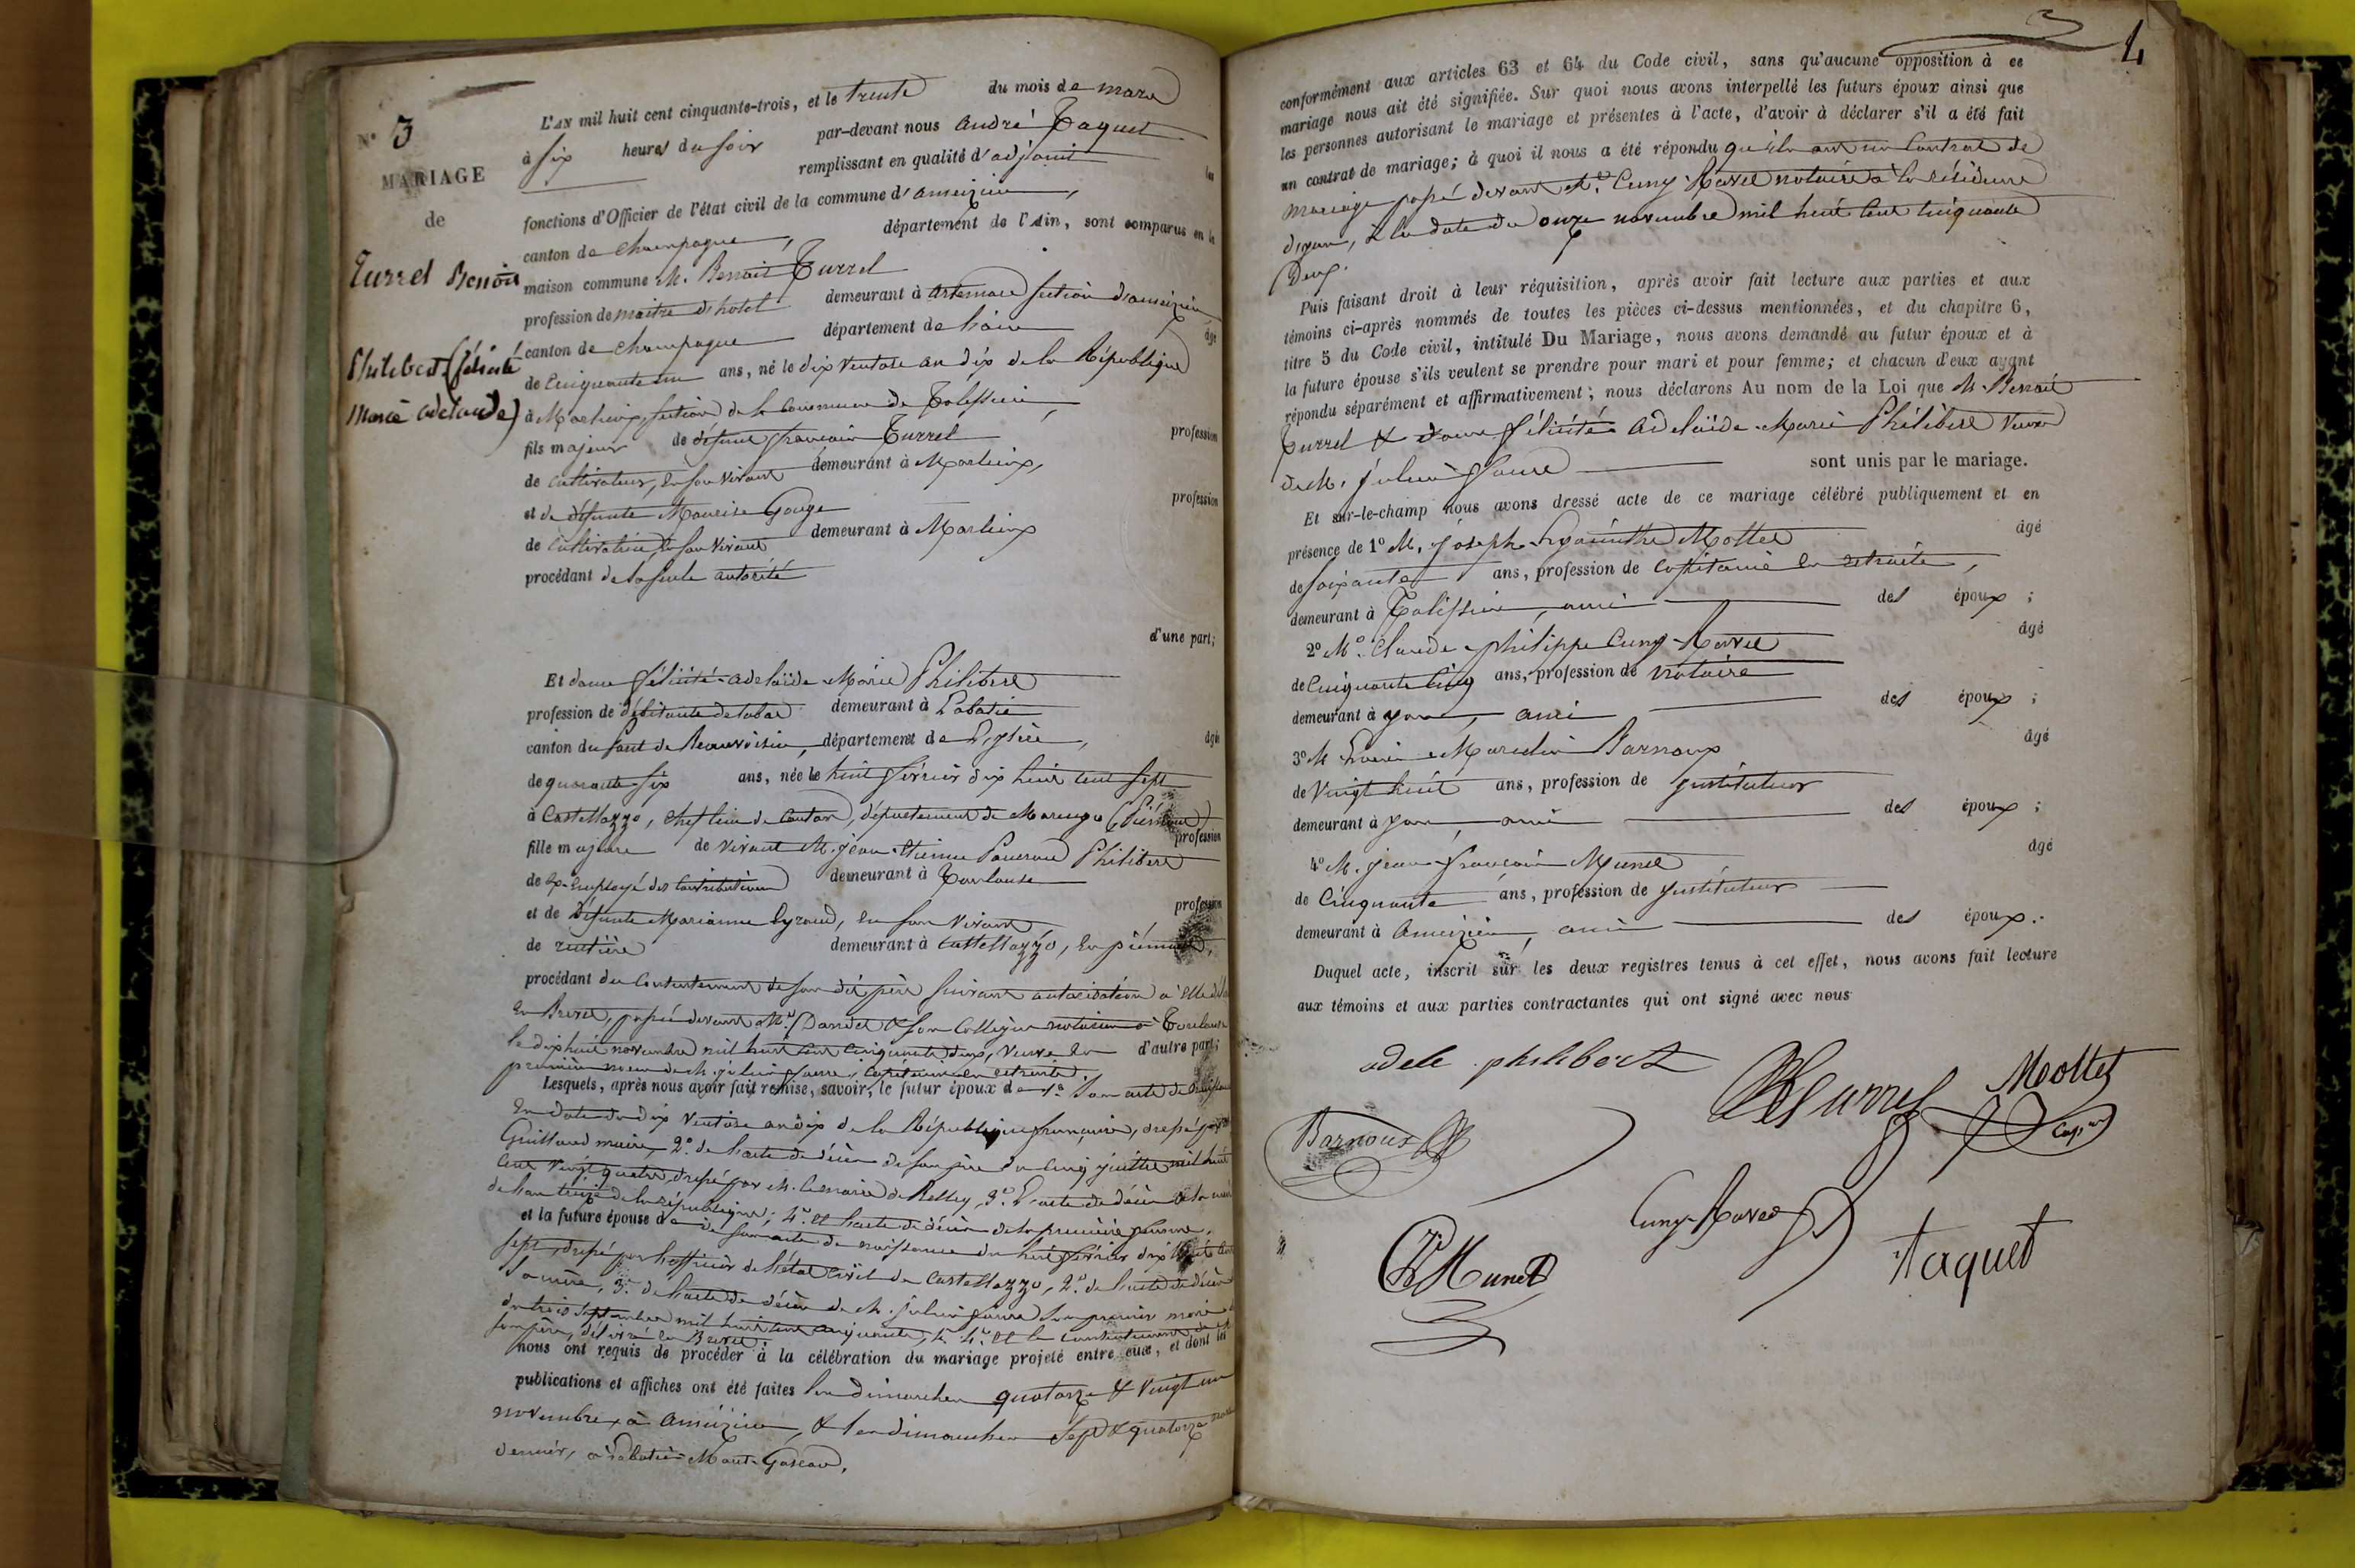 N° 3
MARIAGE
de
Turrel Benoit
Philibert (félicité
Marie adelaïde)
L'AN mil huit cent cinquante-trois, et le trente du mois de mars
à six heures du soir par-devant nous andré Taquet
remplissant en qualité d'adjoint les
fonctions d'Officier de l'état civil de la commune d'ameizieu,
canton de champagne, département de l'Ain, sont comparus en la
maison commune M. Benoit Turrel
profession de maitre d'hotel demeurant à artemare section d'ameizieu
canton de champagne département de l'ain âgé
de Cinquante un ans, né le dix ventose an dix de la République
à Marlieux, section de la Commune de Talissieu,
fils majeur de défunt françois Turrel profession
de cultivateur, en son vivant demeurant à Marlieux,
et de défunte Maurise Gouge profession
de cultivatrice en son vivant demeurant à Marlieux
procédant de sa seule autorité
d'une part;
Et dame félicité-adelaïde-Marie Philibert
profession de débitante de tabac demeurant à Labatie
canton du Pont de Beauvoisin, département de l'isère, âgée
de quarante six ans, née le huit février dix huit cent sept
à Castellazzo, chef lieu de Canton, département de Marengo (Piémont)
fille majeure de vivant M. jean-Etienne Philibert profession
de ex-employé des Contributions demeurant à Toulouse
et de défunte Marianne Eyraud, en son vivant profession
de rentière demeurant à Castellazzo, en piémont,
procédant du Consentement de son dit père suivant autorisation à elle
en Brevet, passé devant Me. Dandet & son Collègue notaires à Toulouse
le dix huit novembre mil huit cent cinquante deux, veuve en d'autre part;
première noce de M. julien faure, capitaine en retraite.
Lesquels, après nous avoir fait remise, savoir, le futur époux de 1° Son acte de naissance
en date du dix Ventose an dix de la République française, dressé par
Guillaud maire, 2°. de l'acte de décès de son père du cinq juillet mil huit
cent vingt quatre, dressé par M. le maire de Belley, 3°. L'acte de décès de sa mère
de l'an treize de la république; 4°. et l'acte de décès de sa première femme.
et la future épouse de de son acte de naissance du huit février dix huit cent
sept, dressé par l'officier de l'état civil de Castellazzo, 2°. de l'acte de décès
sa mère, 3°. de l'acte de décès de M. julien faure son premier mari
du trois septembre mil huit cent cinquante, 4°. et le consentement de
son père, délivré en Brevet.
nous ont requis de procéder à la célébration du mariage projeté entre eux, et dont les
publications et affiches ont été faites les dimanches quatorze & vingt un
novembre à ameizieu, & les dimanches sept & quatorze
dernier, à Labatie-Mont-Gascon.
3
4
conformément aux articles 63 et 64 du Code civil, sans qu'aucune opposition à ce
mariage nous ait été signifiée. Sur quoi nous avons interpellé les futurs époux ainsi que
les personnes autorisant le mariage et présentes à l'acte, d'avoir à déclarer s'il a été fait
un contrat de mariage; à quoi il nous a été répondu qu'ils ont un Contrat de
mariage passé devant Me. Cuny-Ravet notaire à la résidence
d'yon, à la date du onze novembre mil huit cent cinquante
Deux.
Puis faisant droit à leur réquisition, après avoir fait lecture aux parties et aux
témoins ci-après nommés de toutes les pièces ci-dessus mentionnées, et du chapitre 6,
titre 5 du Code civil, intitulé Du Mariage, nous avons demandé au futur époux et à
la future épouse s'ils veulent se prendre pour mari et pour femme; et chacun d'eux ayant
répondu séparément et affirmativement; nous déclarons Au nom de la Loi que M. Benoit
Turrel & dame félicité-adelaïde-Marie Philibert veuve
de M. julien faure sont unis par le mariage.
Et sur-le-champ nous avons dressé acte de ce mariage célébré publiquement et en
présence de 1° M. joseph-hyacinthe Mottet âgé
de soixante ans, profession de capitaine en retraite,
demeurant à Talissieu, ami des époux;
2° Me. Claude-philippe Cuny-Ravet âgé
de Cinquante cinq ans, profession de notaire
demeurant à yon, ami des époux;
3° M. Marcelin Barnoux âgé
de vingt huit ans, profession de instituteur
demeurant à yon, ami des époux;
4° M. jean-françois Munet âgé
de cinquante ans, profession de instituteur
demeurant à ameizieu, ami des époux.
Duquel acte, inscrit sur les deux registres tenus à cet effet, nous avons fait lecture
aux témoins et aux parties contractantes qui ont signé avec nous
adele philibert
BTurrel
Mottet
Barnoux
Cuny-Ravet
Munet
Taquet